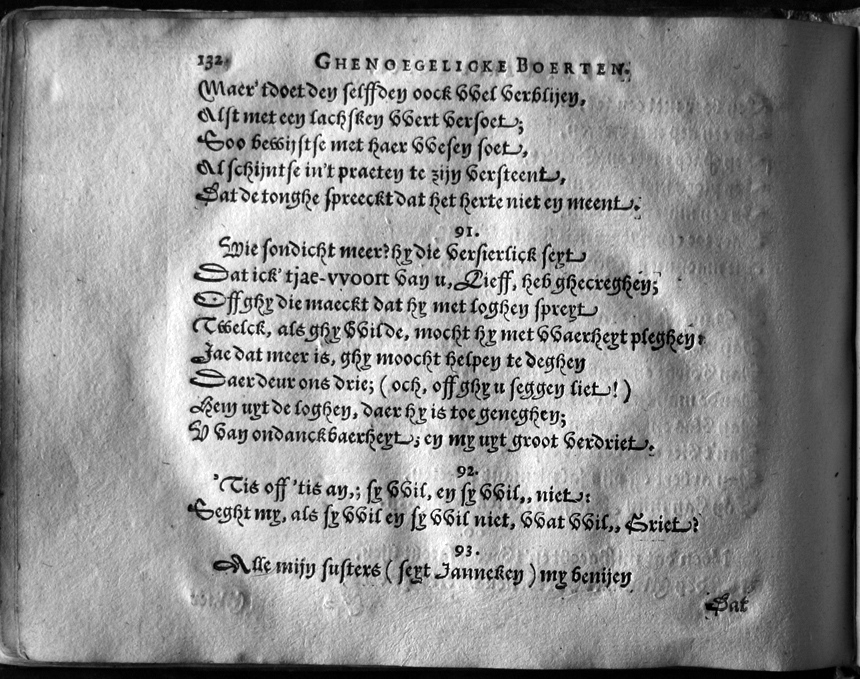 132. GHENOEGELICKE BOERTEN.
Maer' tdoet den selffden oock wel verblijen,
Alst met een lachsken wert versoet;
Soo bewijstse met haer wesen soet,
Al schijntse in't praeten te zijn versteent,
Dat de tonghe spreeckt dat het herte niet en meent.
91.
Wie sondicht meer? hy die versierlick seyt
Dat ick' tjae-vvoort van u, Lieff, heb ghecreghen;
Off ghy die maeckt dat hy met loghen spreyt
Twelck, als ghy wilde, mocht hy met waerheyt pleghen?
Jae dat meer is, ghy moocht helpen te deghen
Daer deur ons drie; (och, off ghy u seggen liet!)
Hem uyt de loghen, daer hy is toe geneghen;
V van ondanckbaerheyt; en my uyt groot verdriet.
92.
'Tis off 'tis an,; sy wil, en sy wil,, niet:
Seght my, als sy wil en sy wil niet, wat wil,, Griet?
93.
Alle mijn susters (seyt Janneken) my benijen
Dat